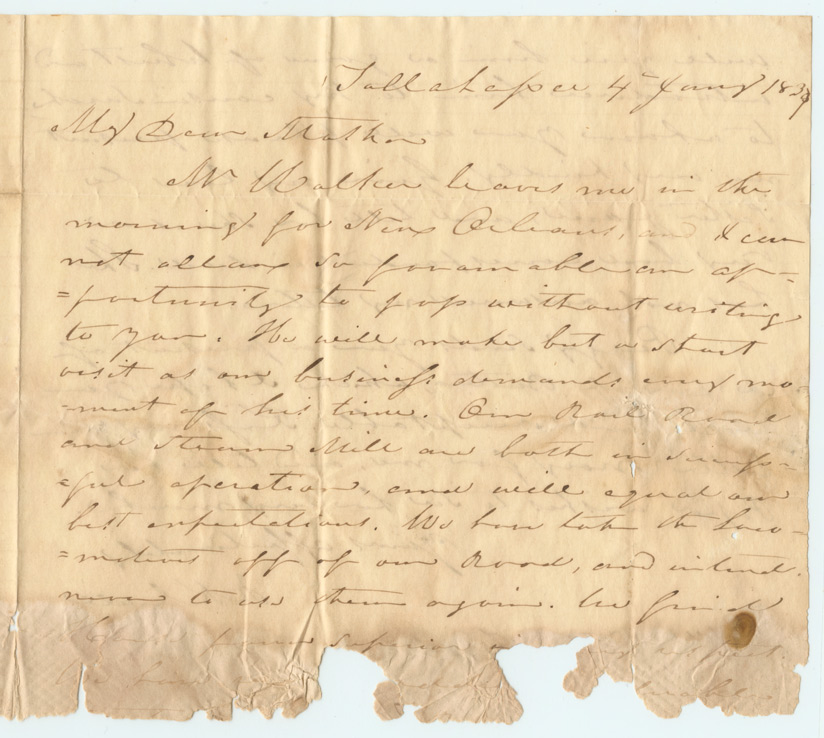 Tallahassee 4th Jany 1839
My Dear Mother
Mr Walker leaves me in the
morning for New Orleans, and I can
not allow so favourable an op-
=portunity to pass without writing
to you. He will make but a short
visit as our business demands every mo-
=ment of his time. Our Rail Road
and Steam Mill are both in success-
=ful operation, and will equal our
best expectations. We have taken the Loco-
=motives off of our Road, and intend
never to use them again. We find
Horse power superior in every respect.
We have